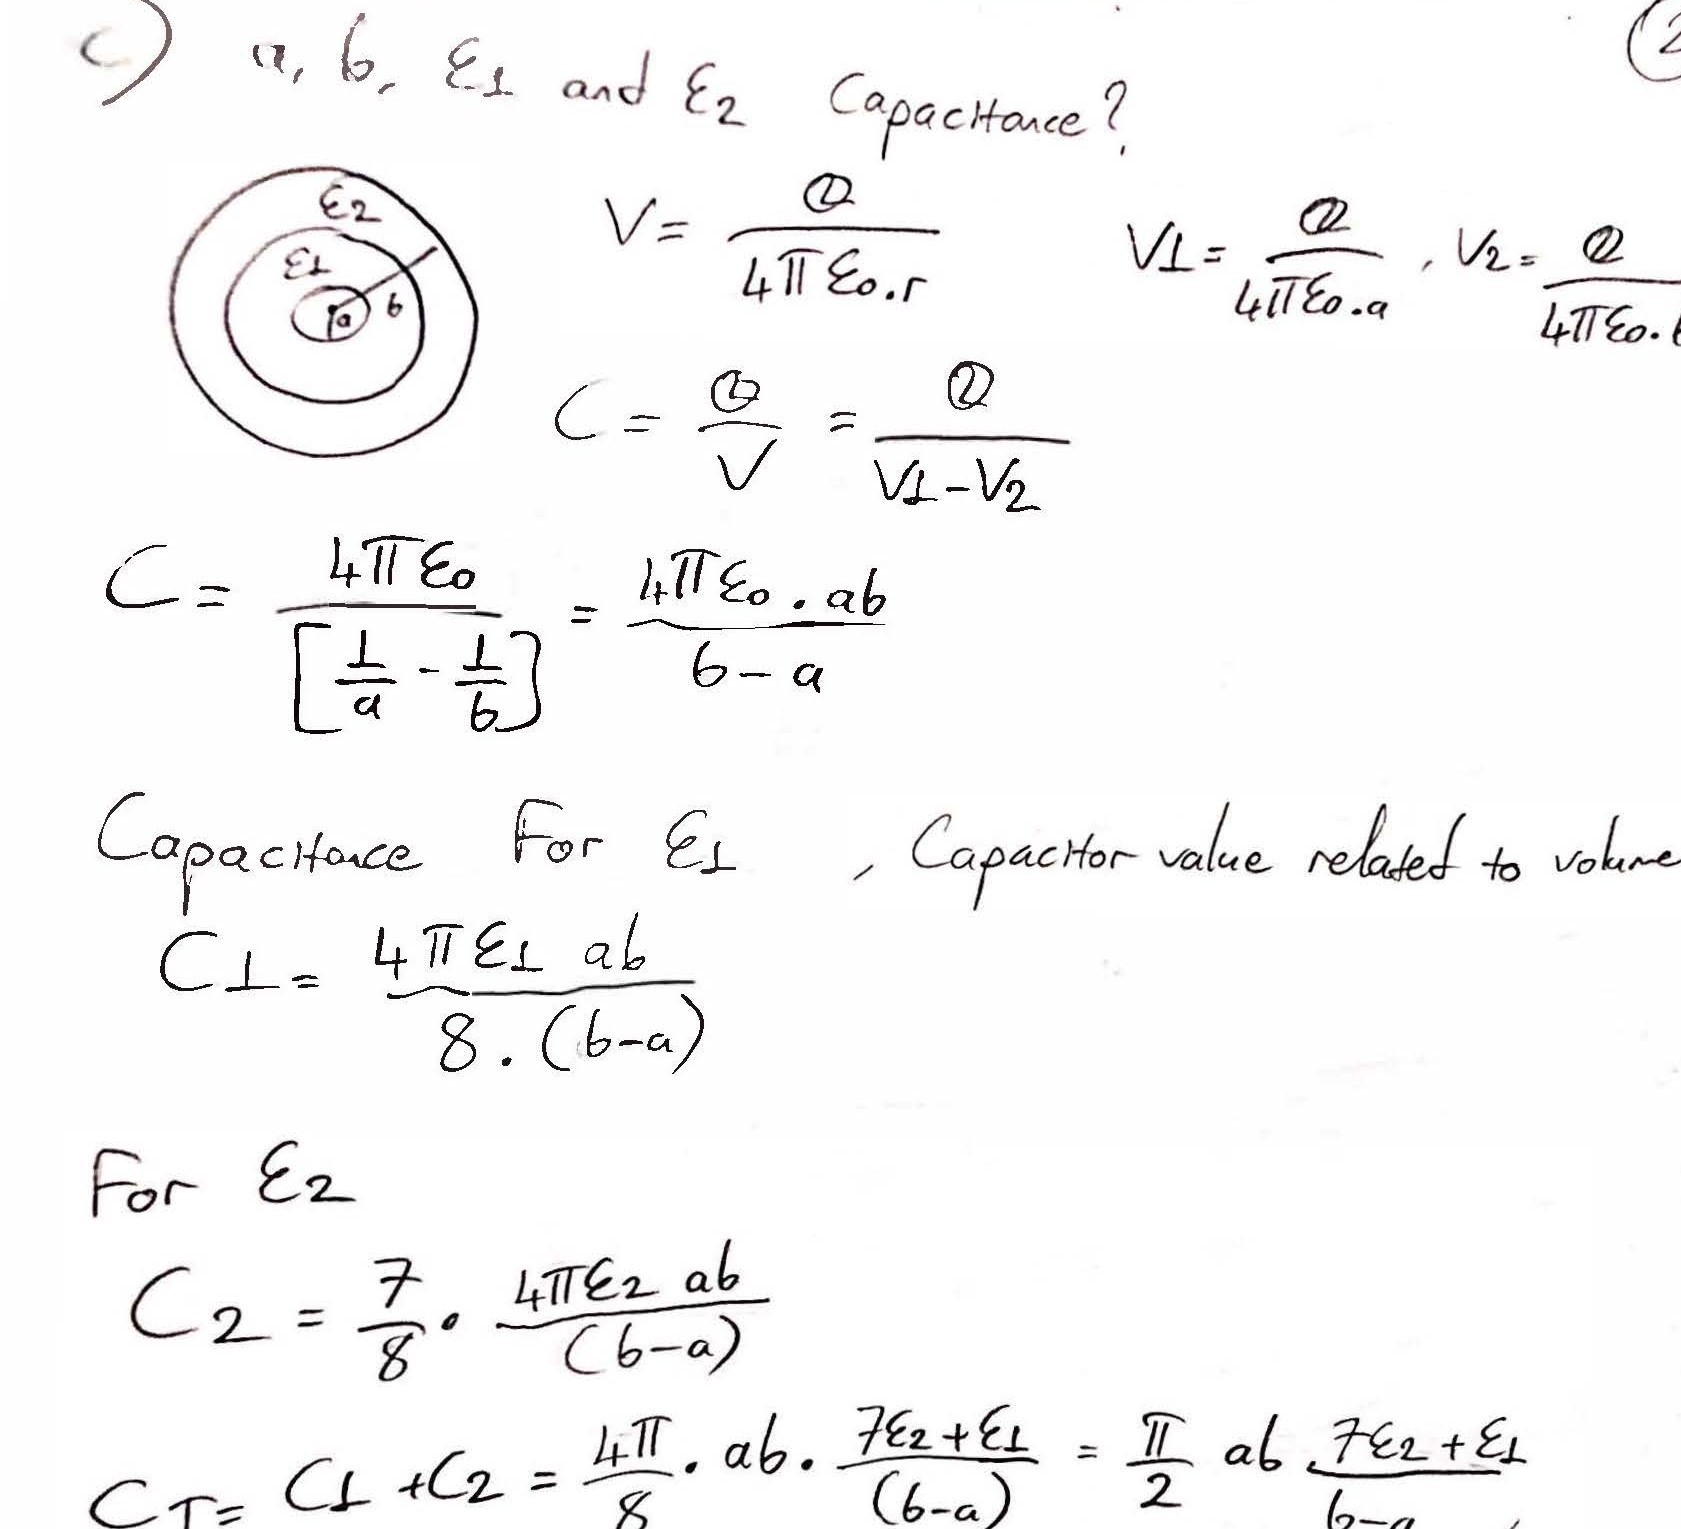 c) a, b, ε1 and ε2 Capacitance? 2
ε2
ε1
a b
V = Q / 4π ε0.r V1 = Q / 4πε0.a , V2 = Q / 4πε0.
C = Q / V = Q / V1-V2
C = 4π ε0 / [1/a - 1/b] = 4π ε0 . ab / b-a
Capacitance For ε1 , Capacitor value related to volume
C1 = 4 π ε1 ab / 8 . (b-a)
For ε2
C2 = 7/8 . 4πε2 ab / (b-a)
CT = C1 + C2 = 4π/8 . ab . 7ε2 + ε1 / (b-a) = π/2 ab 7ε2 + ε1 / b-a